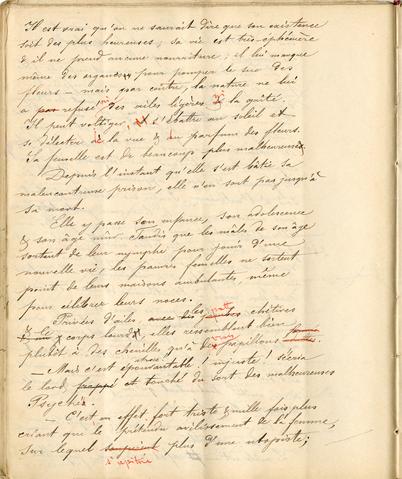 Il est vrai qu'on ne saurait dire que son existence
soit des plus heureuses; sa vie est très-éphémère
& il ne prend aucune nourriture; il lui manque
même des organes pour pomper le suc des
fleurs – mais pour outre, la nature ne lui
a pas refusé des ailes légères & la gaîté.
Il peut voltiger, s'ébattre au soleil et
se délecter à la vue & au parfum des fleurs.
Sa femelle est de beaucoup plus malheureuse.
Depuis l'instant qu'elle s'est bâtie sa
malencontreuse prison, elle n'en sort pas jusqu'à
sa mort.
Elle y passe son enfance, son adolescence
& son âge mûr. Tandis que les mâles de son âge
sortent de leur nymphe pour jouir d'une
nouvelle vie, les pauvres femelles ne sortent
point de leurs maisons ambulantes, même
pour célébrer leurs noces.
Privées d'ailes, avec les pattes chétives
& le corps lourd, elles ressemblent bien
plutôt à des chenilles qu'à des papillons
– Mais c'est épouvantable! injuste! s'écria
le lord, frappé et touché du sort des malheureuses
Psychés.
– C'est en effet fort triste & mille fois plus
criant que le prétendu avilissement de la femme,
sur lequel soupirent plus d'une utopiste;
s'apitoie